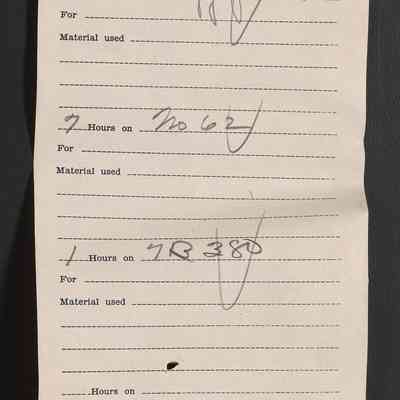 For
Material used
7 Hours on No 62
For
Material used
1 Hours on 7B 380
For
Material used
Hours on